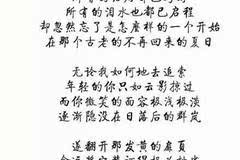 所有的泪水也都已启程
却忽然忘了是怎麽样的一个开始
在那个古老的不再回来的夏日
无论我如何地去追索
年轻的你只如云影掠过
而你微笑的面容极浅极淡
逐渐隐没在日落后的群岚
遂翻开那发黄的扉页